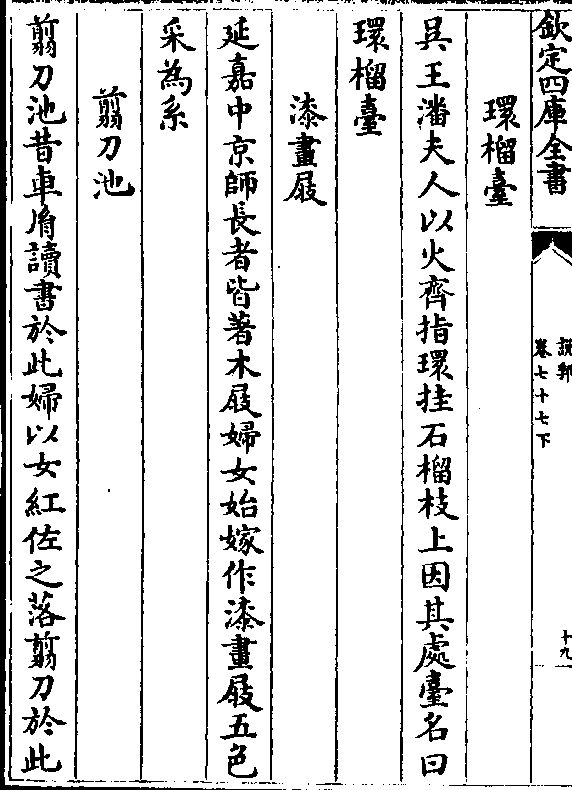 欽定四庫全書
說郛
卷七十七下
十九
環榴臺
吳王潘夫人以火齊指環挂石榴枝上因其處臺名曰
環榴臺
漆畫屐
延嘉中京師長者皆著木屐婦女始嫁作漆畫屐五色
采為系
翦刀池
翦刀池昔車𦙍讀書於此婦以女紅佐之落翦刀於此